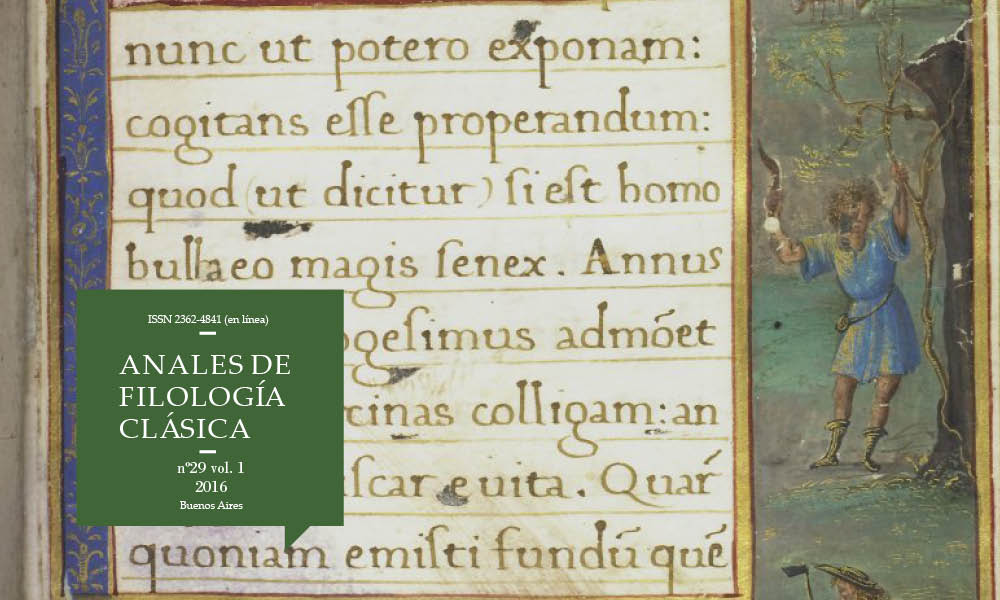 nunc ut potero exponam:
cogitans eſſe properandum:
quod (ut dicitur) ſi eſt homo
bulla eo magis ſenex. Annus
ogeſimus admōet
cinas colligam: an
ſcar e uita. Quar̄
quoniam emiſti fundū quē
ISSN 2362-4841 (en línea)
ANALES DE
FILOLOGÍA
CLÁSICA
nº29 vol. 1
2016
Buenos Aires